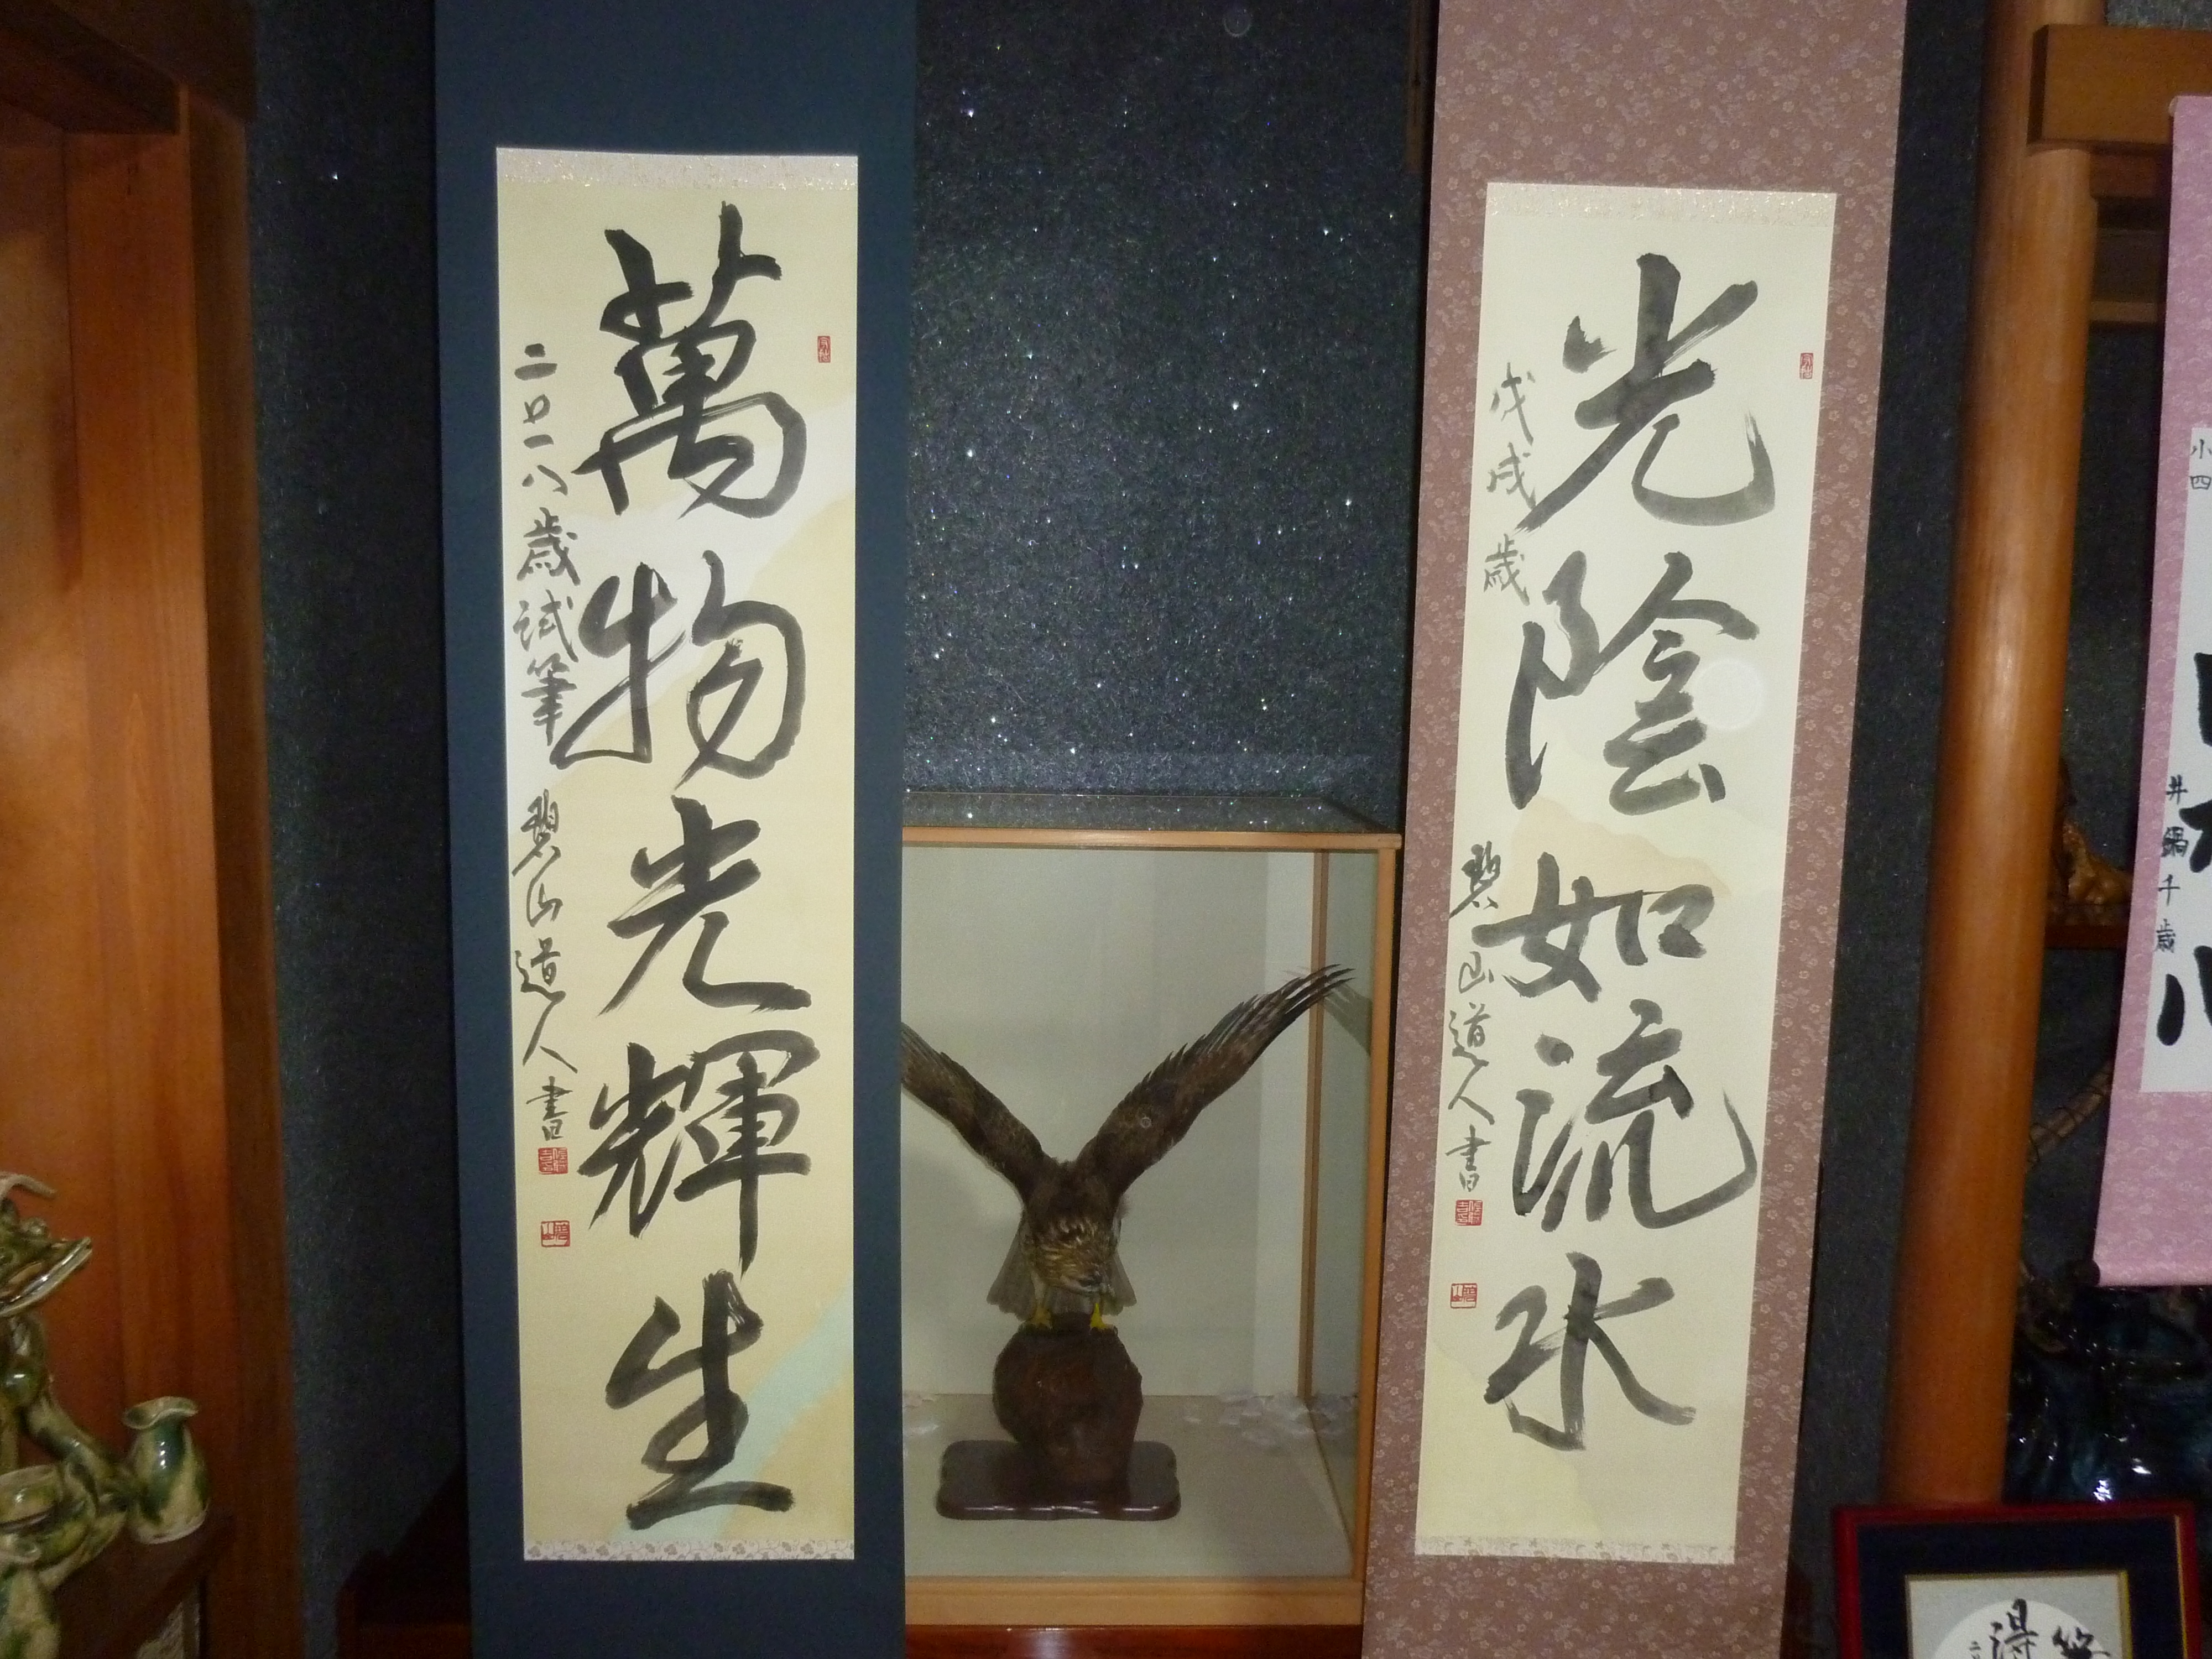 光陰如流水
戊戌歳 碧山道人書
萬物光輝生
二〇一八歳試筆 碧山道人書
小四
井鍋千歳